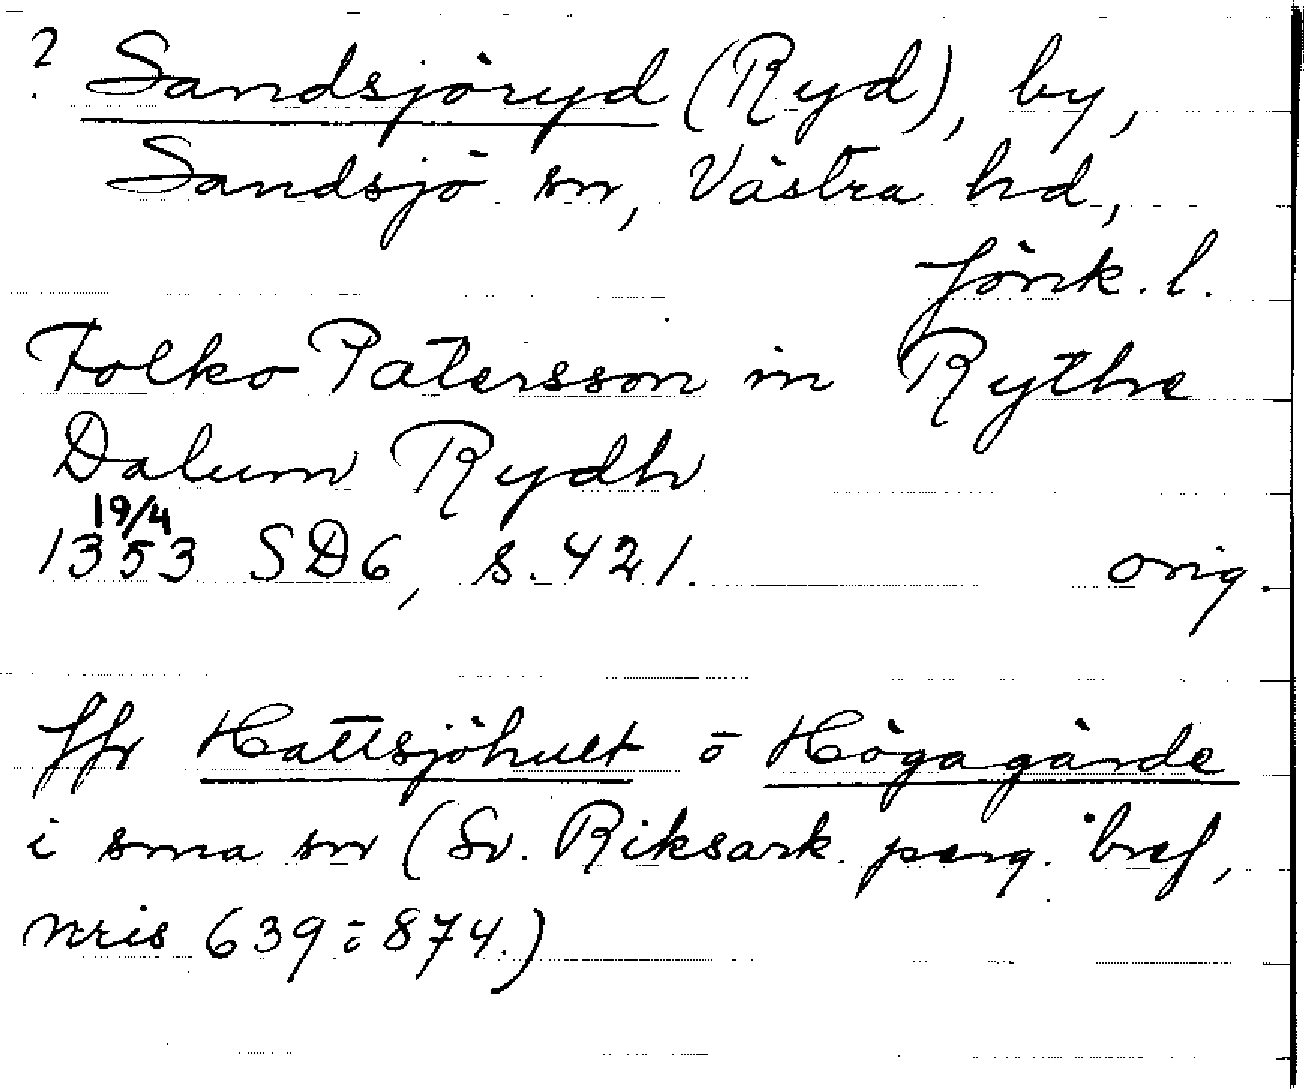 ? Sandsjöryd (Ryd), by,
Sandsjö sn, Västra hd,
Jönk. l.
Folko Pætersson in Rythe
Dalum Rydh
19/4
1353 SD6, s. 421. orig.
Jfr Hattsjöhult o Högagärde
i sma sn (Sv. Riksark. perg. bref,
nris 639 o 874.)